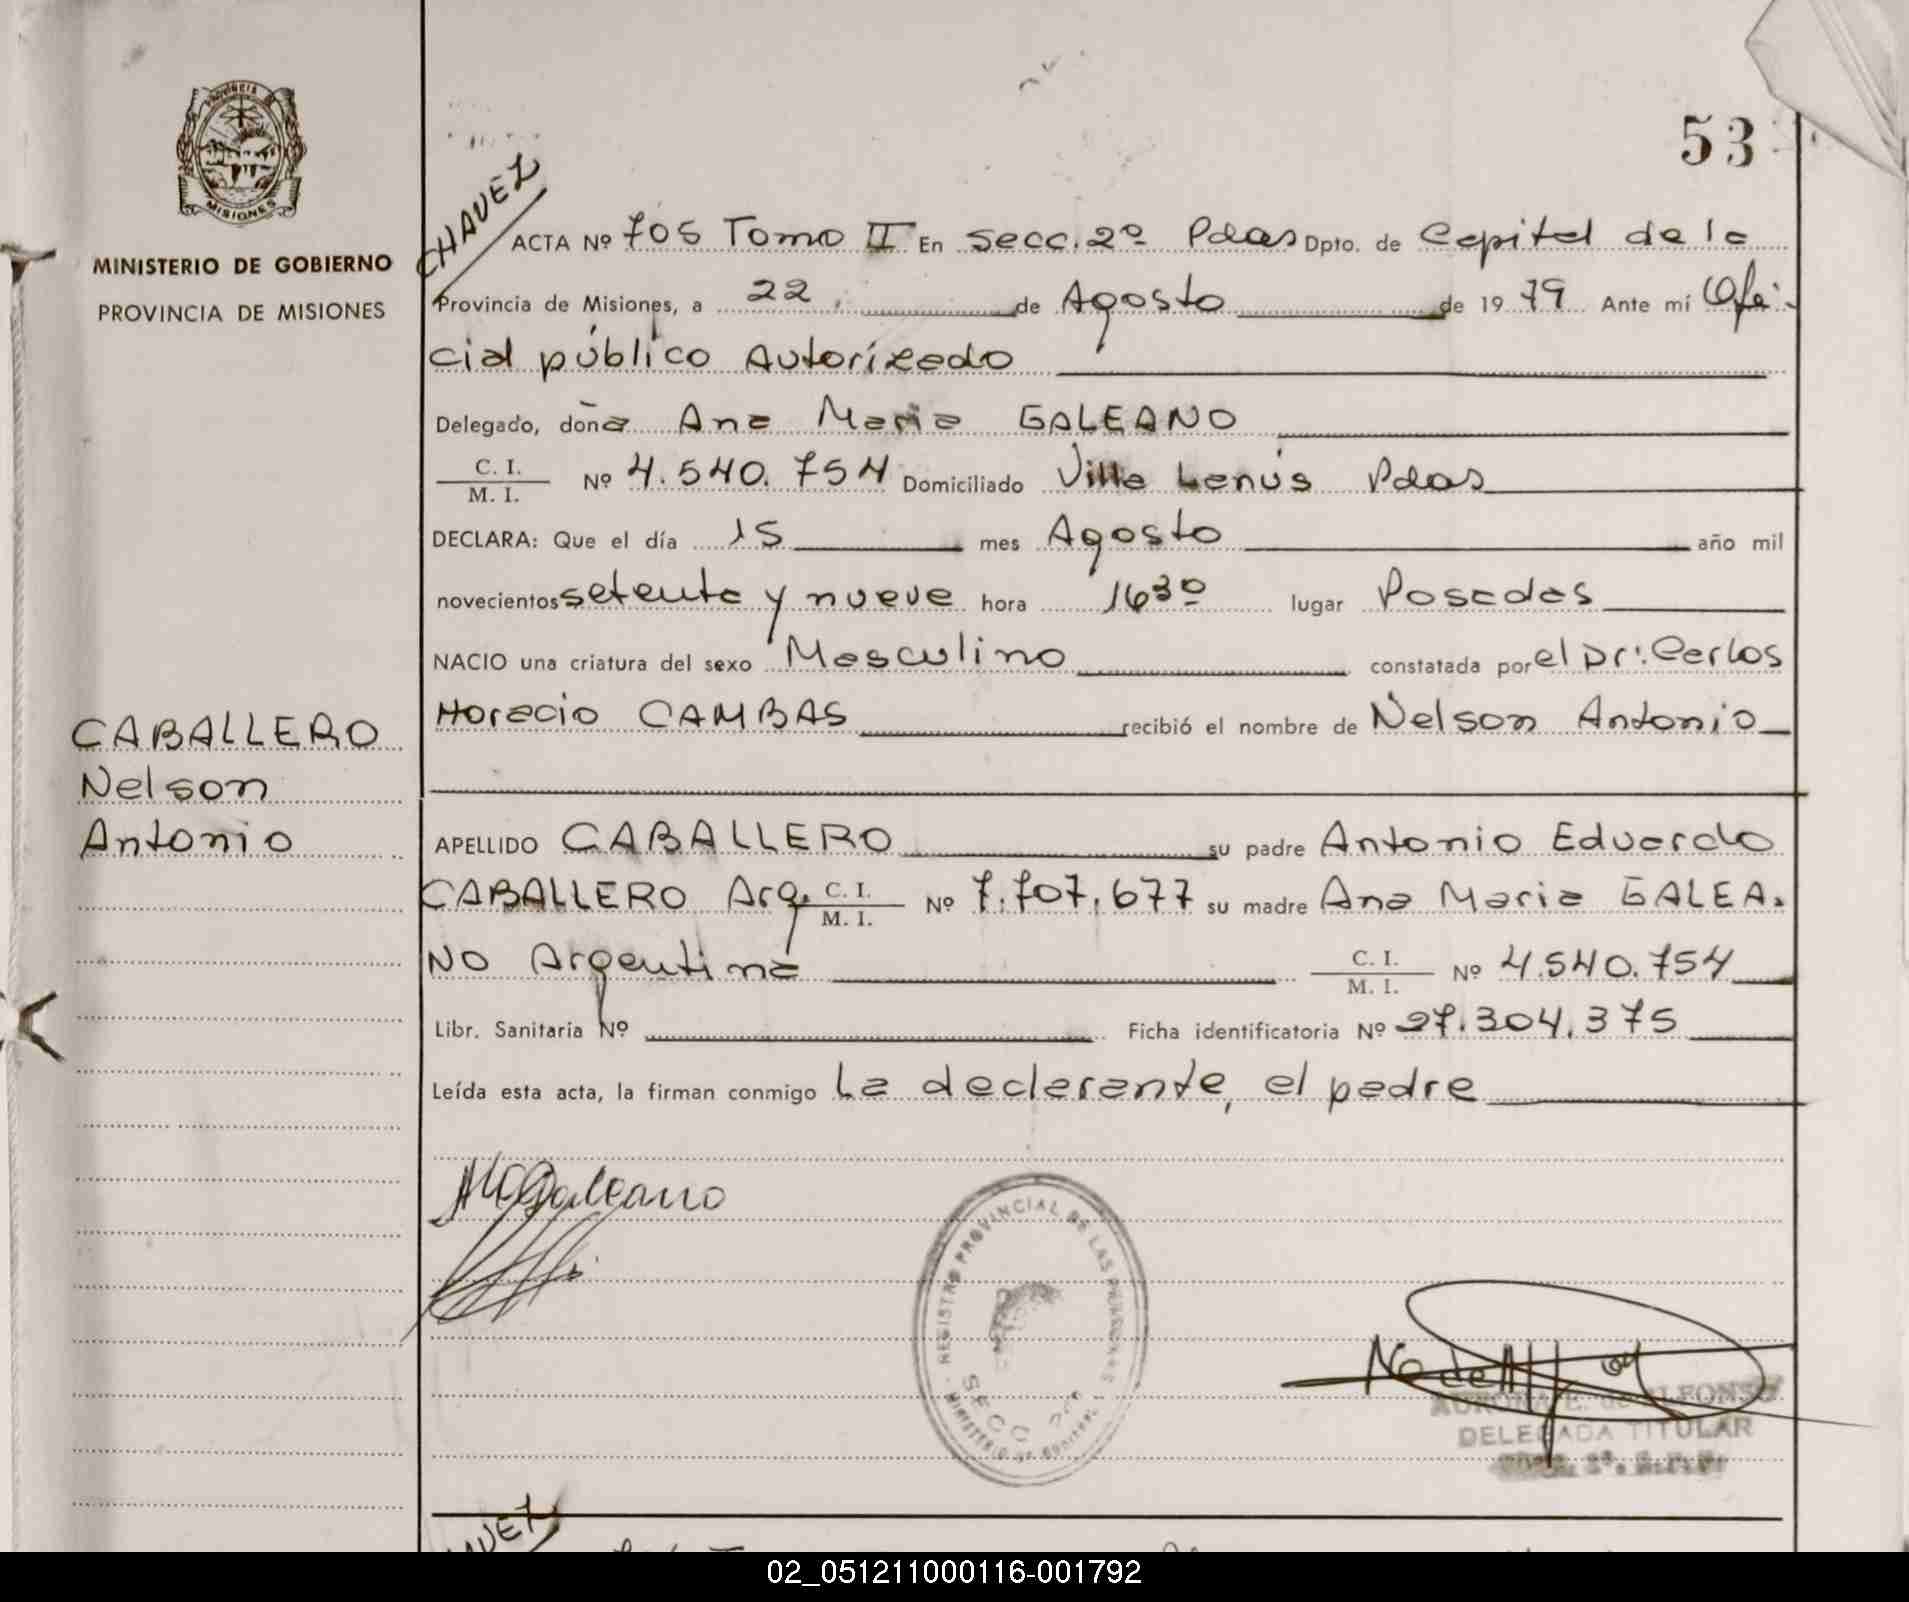 PROVINCIA DE
MISIONES
MINISTERIO DE GOBIERNO
PROVINCIA DE MISIONES
53
CHAVEZ
ACTA Nº 705 Tomo II En secc. 2º Pdas Dpto. de Capital de la
Provincia de Misiones, a 22 de Agosto de 1979 Ante mí Ofi-
cial público Autorizado
Delegado, doña Ana Maria GALEANO
C. I.
M. I. Nº 4.540.754 Domiciliado Villa Lanús Pdas
DECLARA: Que el día 15 mes Agosto año mil
novecientos setenta y nueve hora 16 30 lugar Posadas
NACIO una criatura del sexo Masculino constatada por el Dr: Carlos
Horacio CAMBAS recibió el nombre de Nelson Antonio
CABALLERO
Nelson
Antonio
APELLIDO CABALLERO su padre Antonio Eduardo
CABALLERO Arg. C. I.
M. I. Nº 7.707.677 su madre Ana Maria GALEA-
NO Argentina C. I.
M. I. Nº 4.540.754
Libr. Sanitaria Nº Ficha identificatoria Nº 27.304.375
Leída esta acta, la firman conmigo La declarante, el padre
AMGaleano
REGISTRO PROVINCIAL DE LAS PERSONAS
SECC 2da
MINISTERIO DE GOBIERNO
AURORA E. de ALFONSO
DELEGADA TITULAR
02_051211000116-001792